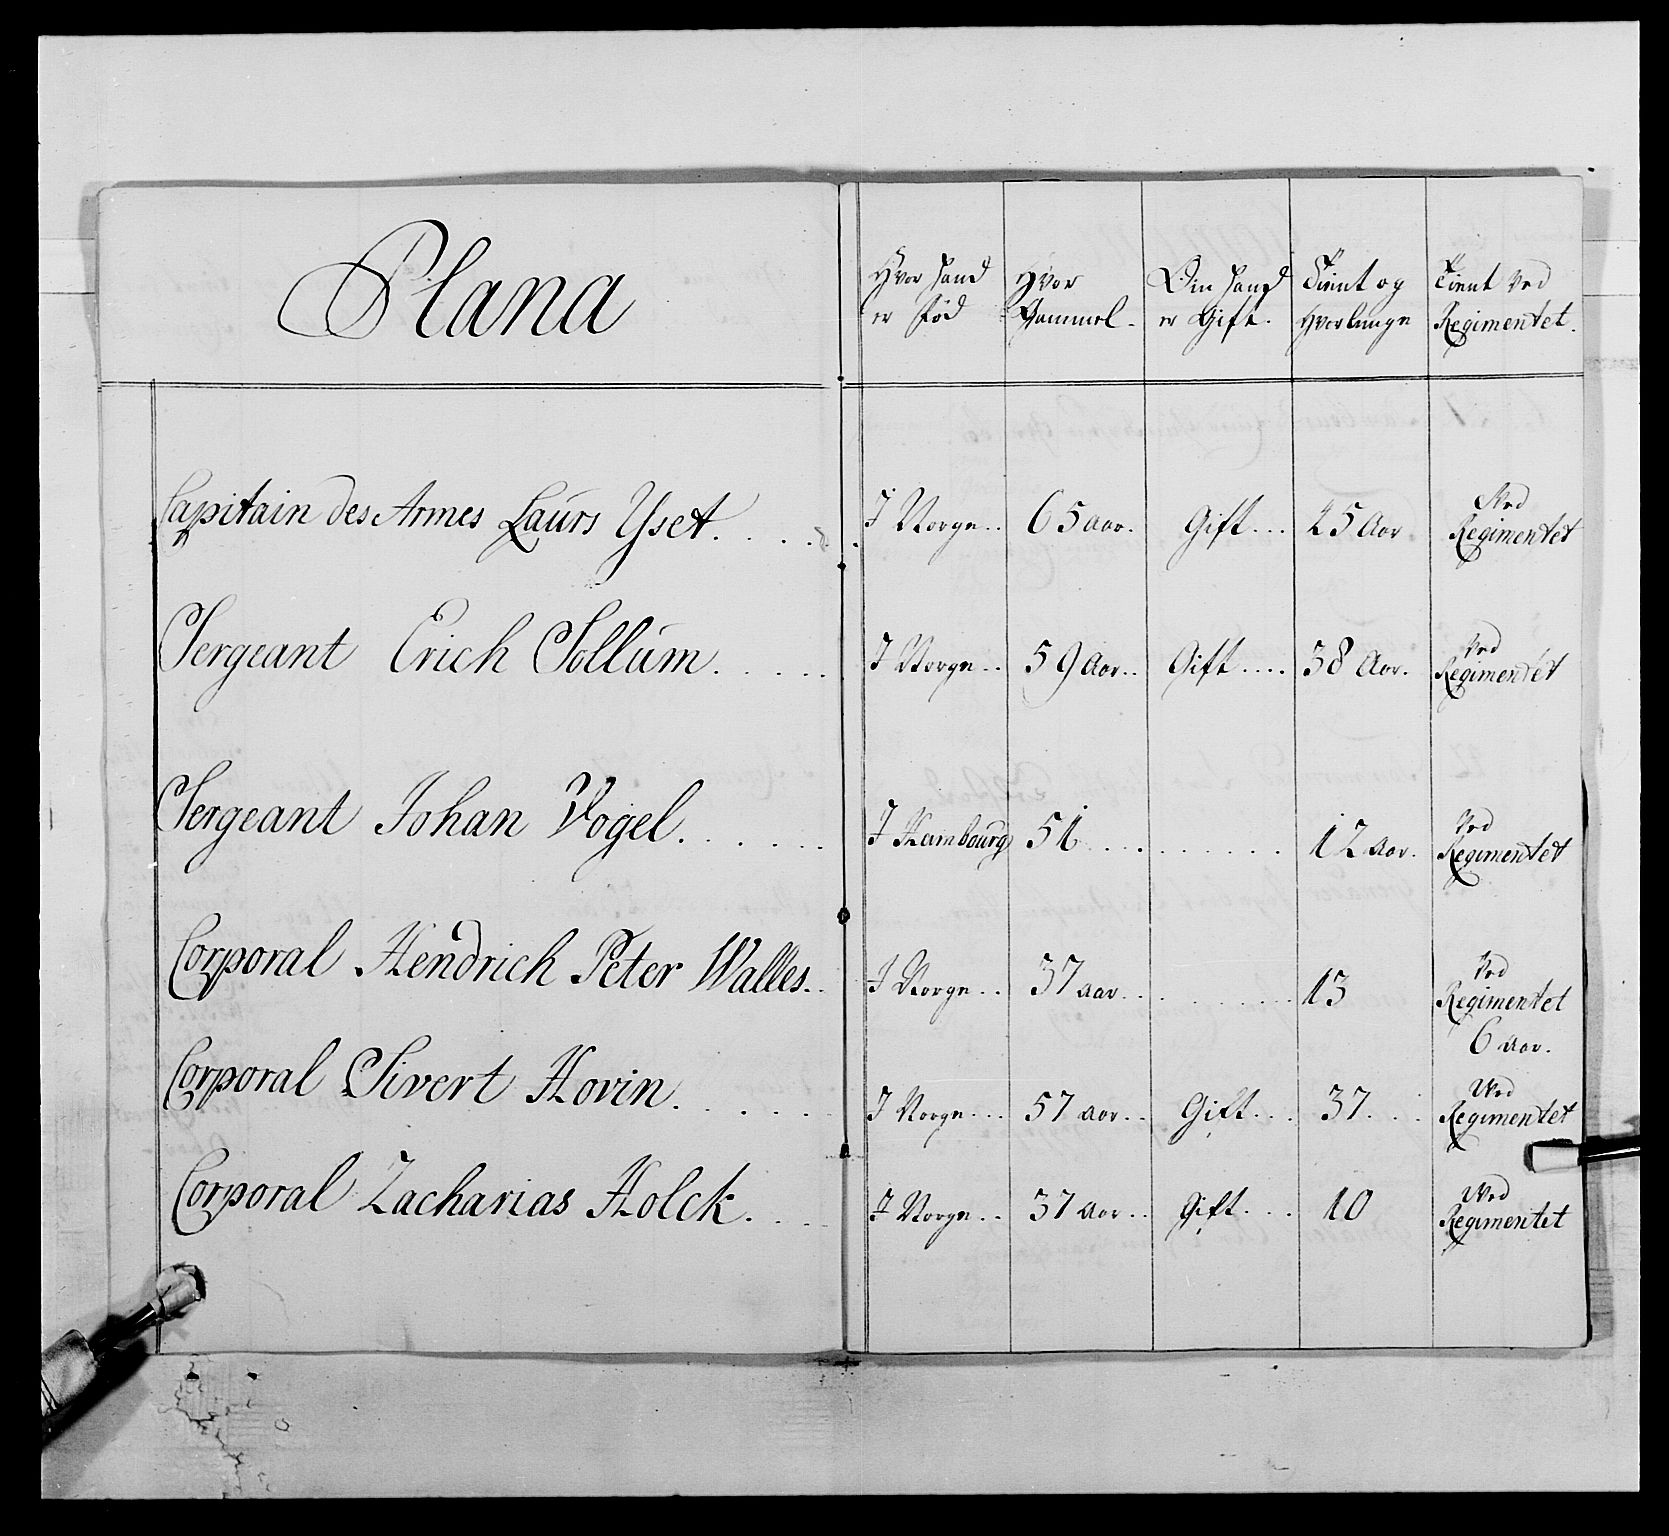 Plana
Hvor hand er Fød
Hvor Gammel.
Om hand er Gift.
Tient og Hvorlænge
Tient Ved Regimentet.
Capitain des Armes Laurs Yset. I Norge.. 65 aar. Gift... 25 Aar Ved Regimentet
Sergeant Erich Sollum. I Norge.. 59 Aar.. Gift.... 38 Aar. Ved Regimentet
Sergeant Johan Vogel. I Hambourg 51 12 Aar. Ved Regimentet
Corporal Hendrich Peter Walles.. I Norge.. 37 aar. 13 Ved Regimentet 6 aar.
Corporal Sivert Hovin. I Norge... 57 aar.. Gift... 37. Ved Regimentet
Corporal Zacharias Holck. I Norge.. 37 aar.. Gift... 10 Ved Regimentet